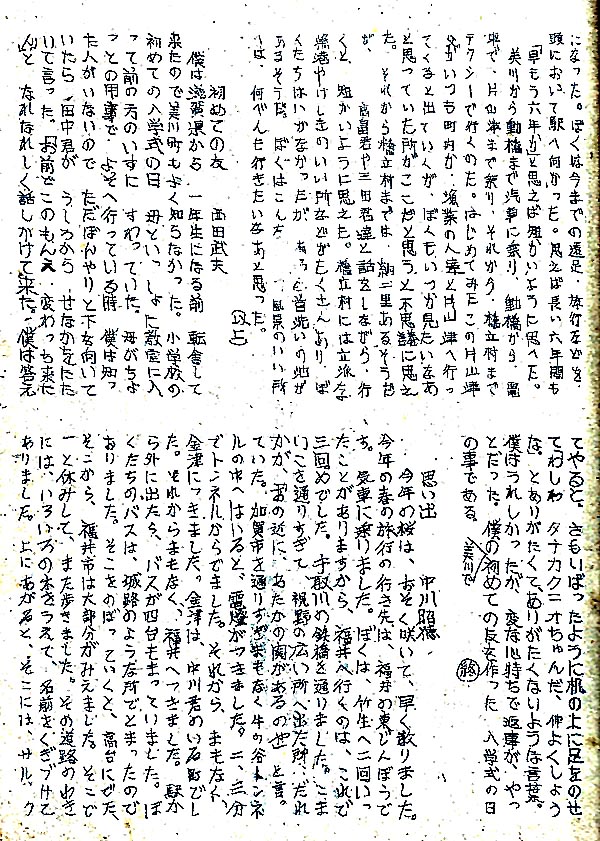 になった。ぼくは今までの遠足、旅行などを
頭において駅へ向かった。思えば長い六年間も
「早もう六年か」と思えば短かいように思へた。
美川から動橋まで汽車に乗り、動橋から、電
車で、片山津まで乗り、それから、橋立村まで
テクシーで行くのだ。はじめてみたこの片山津
が、いつも町内が、漁業の人達と片山津へ行っ
てくると出ていくが、ぼくもいつか見たいなあ
と思っていた所がここだと思うと不思議に思え
た。それから橋立村までは、約二里あるそうだ
が、高畠君や三田君達と話をしながら、行
くと、短かいように思えた。橋立村には立派な
くたちはいかなかったが
あるそうだ。ぼくはこんな風景のいい所
へは、何べんも行きたいなあと思った。
以上
初めての友 西田武夫
僕は滋賀県から、一年生になる前、転舎して
来たので美川町もよく知らなかった。小学校の
初めての入学式の日、母といっしょに教室に入
って前の方のいすに、すわっていた。母がちょ
っとの用事で、よそへ行っている時、僕は知っ
た人がいないので、ただぼんやりと下を向いて
いたら、田中君が、うしろから、せなかをたた
いて言った。「お前どこのもんえ、変わっち来た
と、なれなれしく話しかけて来た。僕は答え
てやると、さもいばったように机の上に足をのせ
て「わしわ、タナカクニオちゅんだ、仲よくしょう
な」とありがたくて、ありがたくないような言葉。
僕はうれしかったが、変な心持ちで返事が、やっ
とだった。僕の初めての友を作った、入学式の日
の事である。
美川で
終
思い出 中川昭穂
今年の桜は、おそく咲いて、早く散りました。
今年の春の旅行の行き先は、福井の東じんぼうで
す。愛車に乗りました。ぼくは、竹生へ二回いっ
たことがありますから、福井へ行くのは、これで
三回めでした。手取川の鉄橋を通りました。こま
いこを通りすぎて、視野の広い所へ出た所、だれ
かが、「雷の近に、あたかの関があるのや」と言っ
ていた。加賀市を通りすぎまもなく牛の谷トンネ
ルの中へはいると、電燈がつきました。二、三分
でトンネルからでました。それから、まもなく、
金津につきました。金津は、中川君のいる町でし
た。それからまもなく、福井へつきました。駅か
ら外に出たら、バスが四台もまっていました。ぼ
くたちのバスは、城跡のような所でとまったので
ありました。そこをのぼっていくと、高台にでた。
そこから、福井市は大部分がみえました。そこで
一と休みして、また歩きました。その道路のわき
には、いろいろの木をうえて、名前をくぎづけて
ありました。上にあがると、そこには、サル、ク